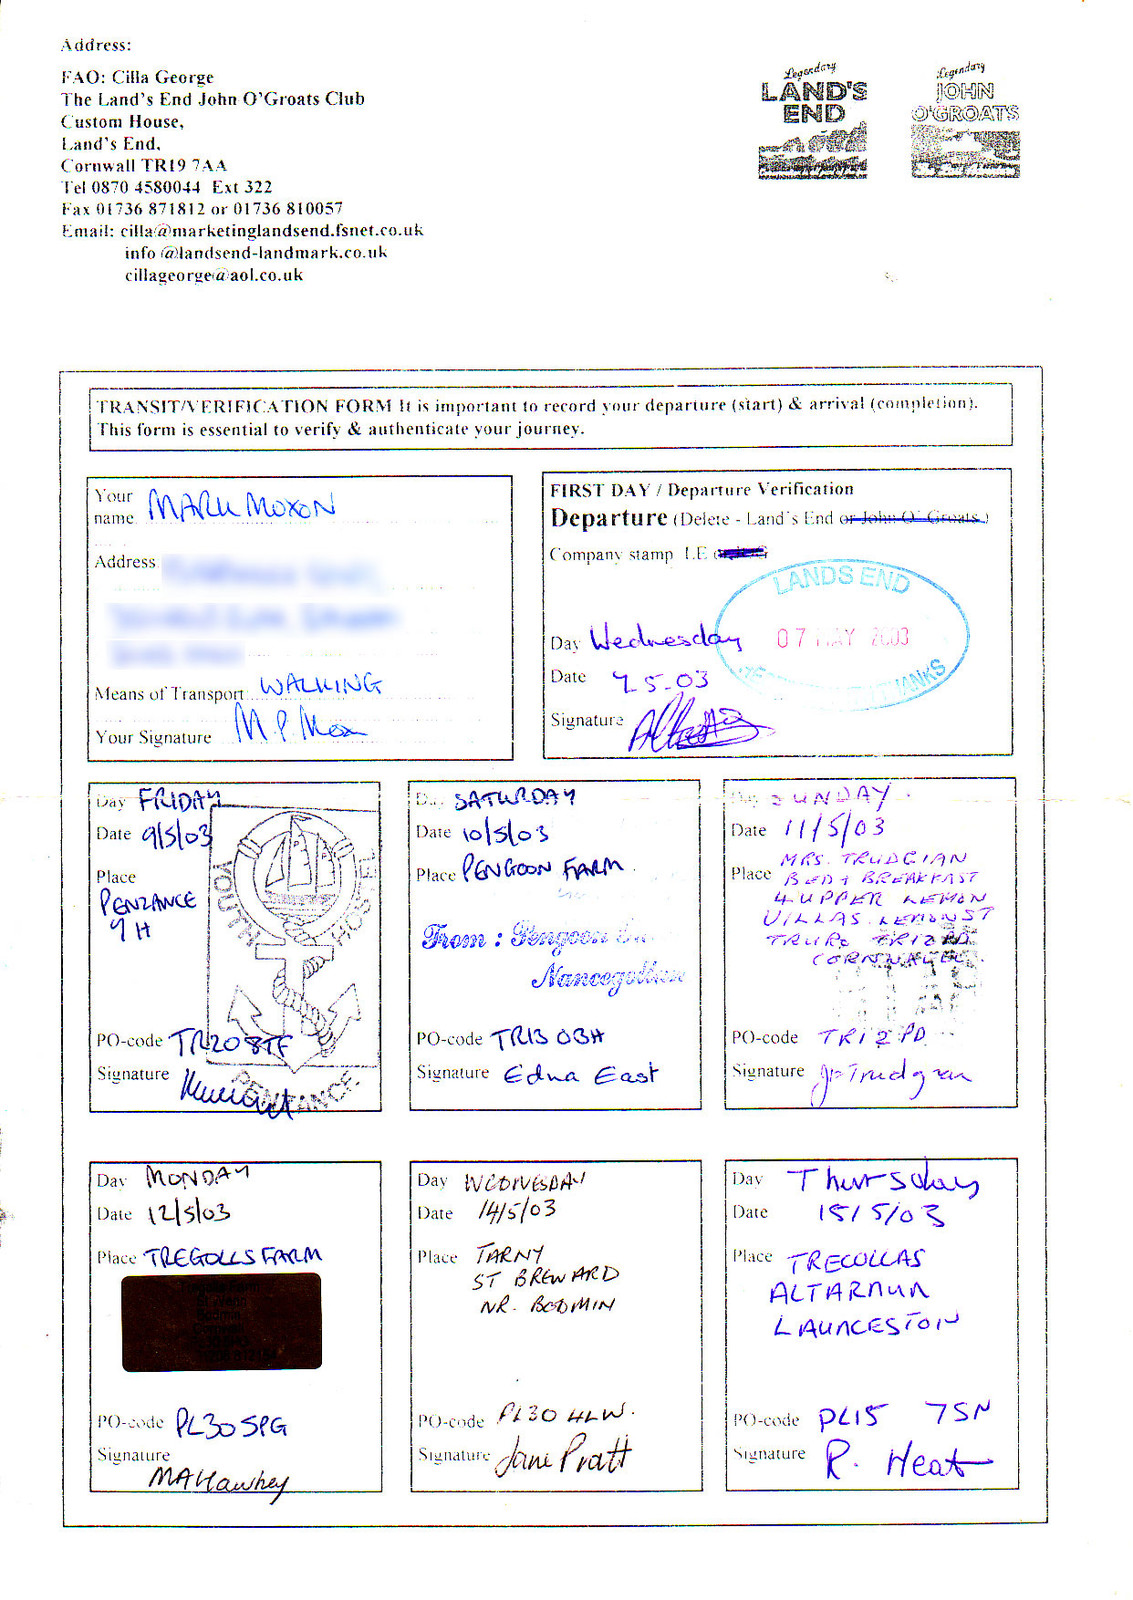 Address:
FAO: Cilla George
The Land's End John O'Groats Club
Custom House,
Land's End,
Cornwall TR19 7AA
Tel 0870 4580044 Ext 322
Fax 01736 871812 or 01736 810057
Email: cilla@marketinglandsend.fsnet.co.uk
info @landsend-landmark.co.uk
cillageorge@aol.co.uk
Legendary
LAND'S
END
Legendary
JOHN
O'GROATS
TRANSIT/VERIFICATION FORM It is important to record your departure (start) & arrival (completion).
This form is essential to verify & authenticate your journey.
Your
name MARK MOXON
Address
Means of Transport: WALKING
Your Signature M.P. Moxon
FIRST DAY / Departure Verification
Departure (Delete - Land's End or John O' Groats)
Company stamp LE
LANDS END
07 MAY 2003
Day Wednesday
Date 7.5.03
Signature
Day FRIDAY
Date 9/5/03
Place
PENZANCE
YH
YOUTH HOSTEL
PENZANCE
PO-code TR20 8TF
Signature
Day SATURDAY
Date 10/5/03
Place PENGOON FARM
From: Pengoon
Nancegollan
PO-code TR13 0BH
Signature Edna East
Day SUNDAY.
Date 11/5/03
Place MRS. TRUDGIAN
BED & BREAKFAST
4 UPPER LEMON
VILLAS. LEMON ST
TRURO TR12PD
CORNWALL.
PO-code TR12PD
Signature Trudgian
Day MONDAY
Date 12/5/03
Place TREGOLLS FARM
PO-code PL30 5PG
Signature
MAHawkey
Day WEDNESDAY
Date 14/5/03
Place TARNY
ST BREWARD
NR. BODMIN
PO-code PL30 4LW.
Signature Jane Pratt
Day Thursday
Date 15/5/03
Place TRECOLLAS
ALTARNUN
LAUNCESTON
PO-code PL15 7SN
Signature R. Heat